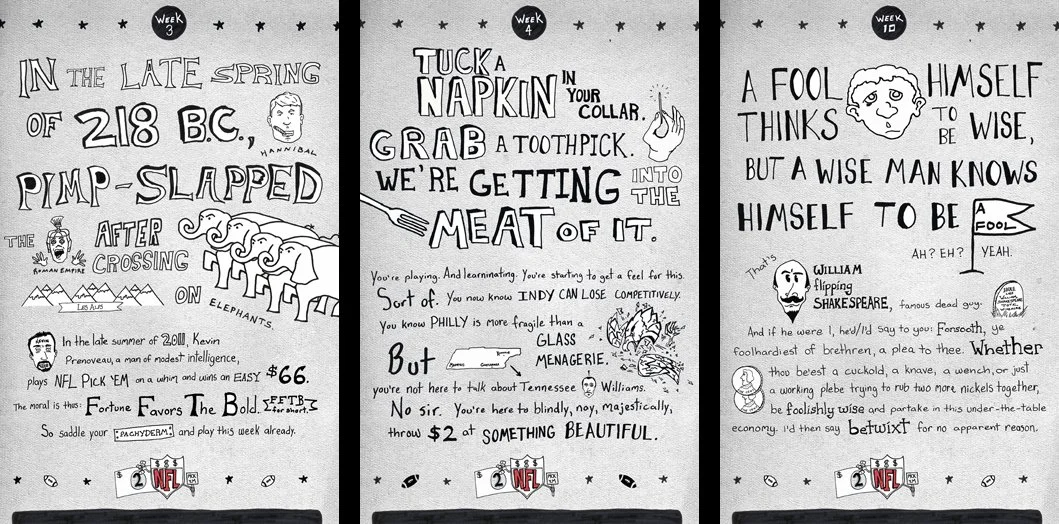 WEEK
3
IN THE LATE SPRING
OF 218 B.C.,
HANNIBAL
PIMP-SLAPPED
THE
ROMAN EMPIRE
AFTER
CROSSING
LES ALPS
ON ELEPHANTS.
In the late summer of 2011, Kevin
Prenoveau, a man of modest intelligence,
plays NFL PICK 'EM on a whim and wins an EASY $66.
The moral is thus: Fortune Favors The Bold. FFTB
for short.
So saddle your PACHYDERM, and play this week already.
$ 2 $$$ NFL PICK 'EM
WEEK
4
TUCK A
NAPKIN IN
YOUR
COLLAR.
GRAB A TOOTHPICK.
WE'RE GETTING INTO
THE
MEAT OF IT.
You're playing. And learninating. You're starting to get a feel for this.
Sort of. You now know INDY CAN LOSE COMPETITIVELY.
You know PHILLY is more fragile than a
GLASS
MENAGERIE.
But
you're not here to talk about Tennessee Williams.
No sir. You're here to blindly, noy, majestically,
throw $2 at SOMETHING BEAUTIFUL.
$ 2 $$$ NFL PICK 'EM
WEEK
10
A FOOL HIMSELF
THINKS TO
BE WISE,
BUT A WISE MAN KNOWS
HIMSELF TO BE A
FOOL
AH? EH? YEAH.
That's WILLIAM
flipping
SHAKESPEARE, famous dead guy.
And if he were I, he'd/I'd say to you: Forsooth, ye
foolhardiest of brethren, a plea to thee. Whether
thou be'est a cuckold, a knave, a wench, or just
a working plebe trying to rub two more nickels together,
be foolishly wise and partake in this under-the-table
economy. I'd then say betwixt for no apparent reason.
$ 2 $$$ NFL PICK 'EM